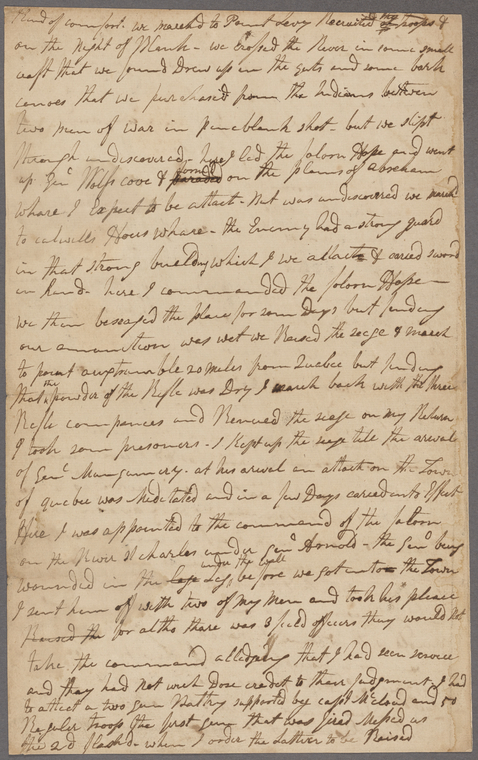 Kind of comfort. we marched to Point Levy Recruited my troops &
on the Night of March - we Crossed the River in some small
craft that we found Drew up in the guts and some bark
canoes that we purchased from the Indians between
two men of war in pinc blank shot - but we slipt
through undiscovered - here I led the folorn Hope and went
up Genl Wolfs cove & formd paraded on the plains of abreham
whare I Expect to be attact - Not was undiscovred we march
to calwells Hous whare - the Enemy had a strong guard
in that strong building which I we attact & caried sword
in hand - here I commanded the folorn Hope -
we then beseaged the place for som Days but finding
our ammunition was wet we Raised the seege & march
to point auxtramble 20 miles from Quebec but finding
that the powder of the Rifle was Dry I march back with the three
Rifle companies and Renewed the seage on my Return
I took som presoners - I kept up the seege till the arival
of Genl Mungumery. at his arival an attack on the Town
of quebec was Meditated and in a few Days caried into Effect
Here I was appointed to the command of the folorn
on the River St charles under Genl Arnold - the Genl being
wounded in the Legg Leg, under the wall before we got into the Town
I sent him of with two of my Men and took his please
Raised the for altho thare was 3 feild officers they would Not
take the command alledging that I had seen service
and they had not wich Dose credet to their judgment, I had
to attact a two gun Battry supported by capt McCloud and 50
Reguler troops the first gun that was fired Missed us
the 2d flashd - when I order the Latters to be Raised